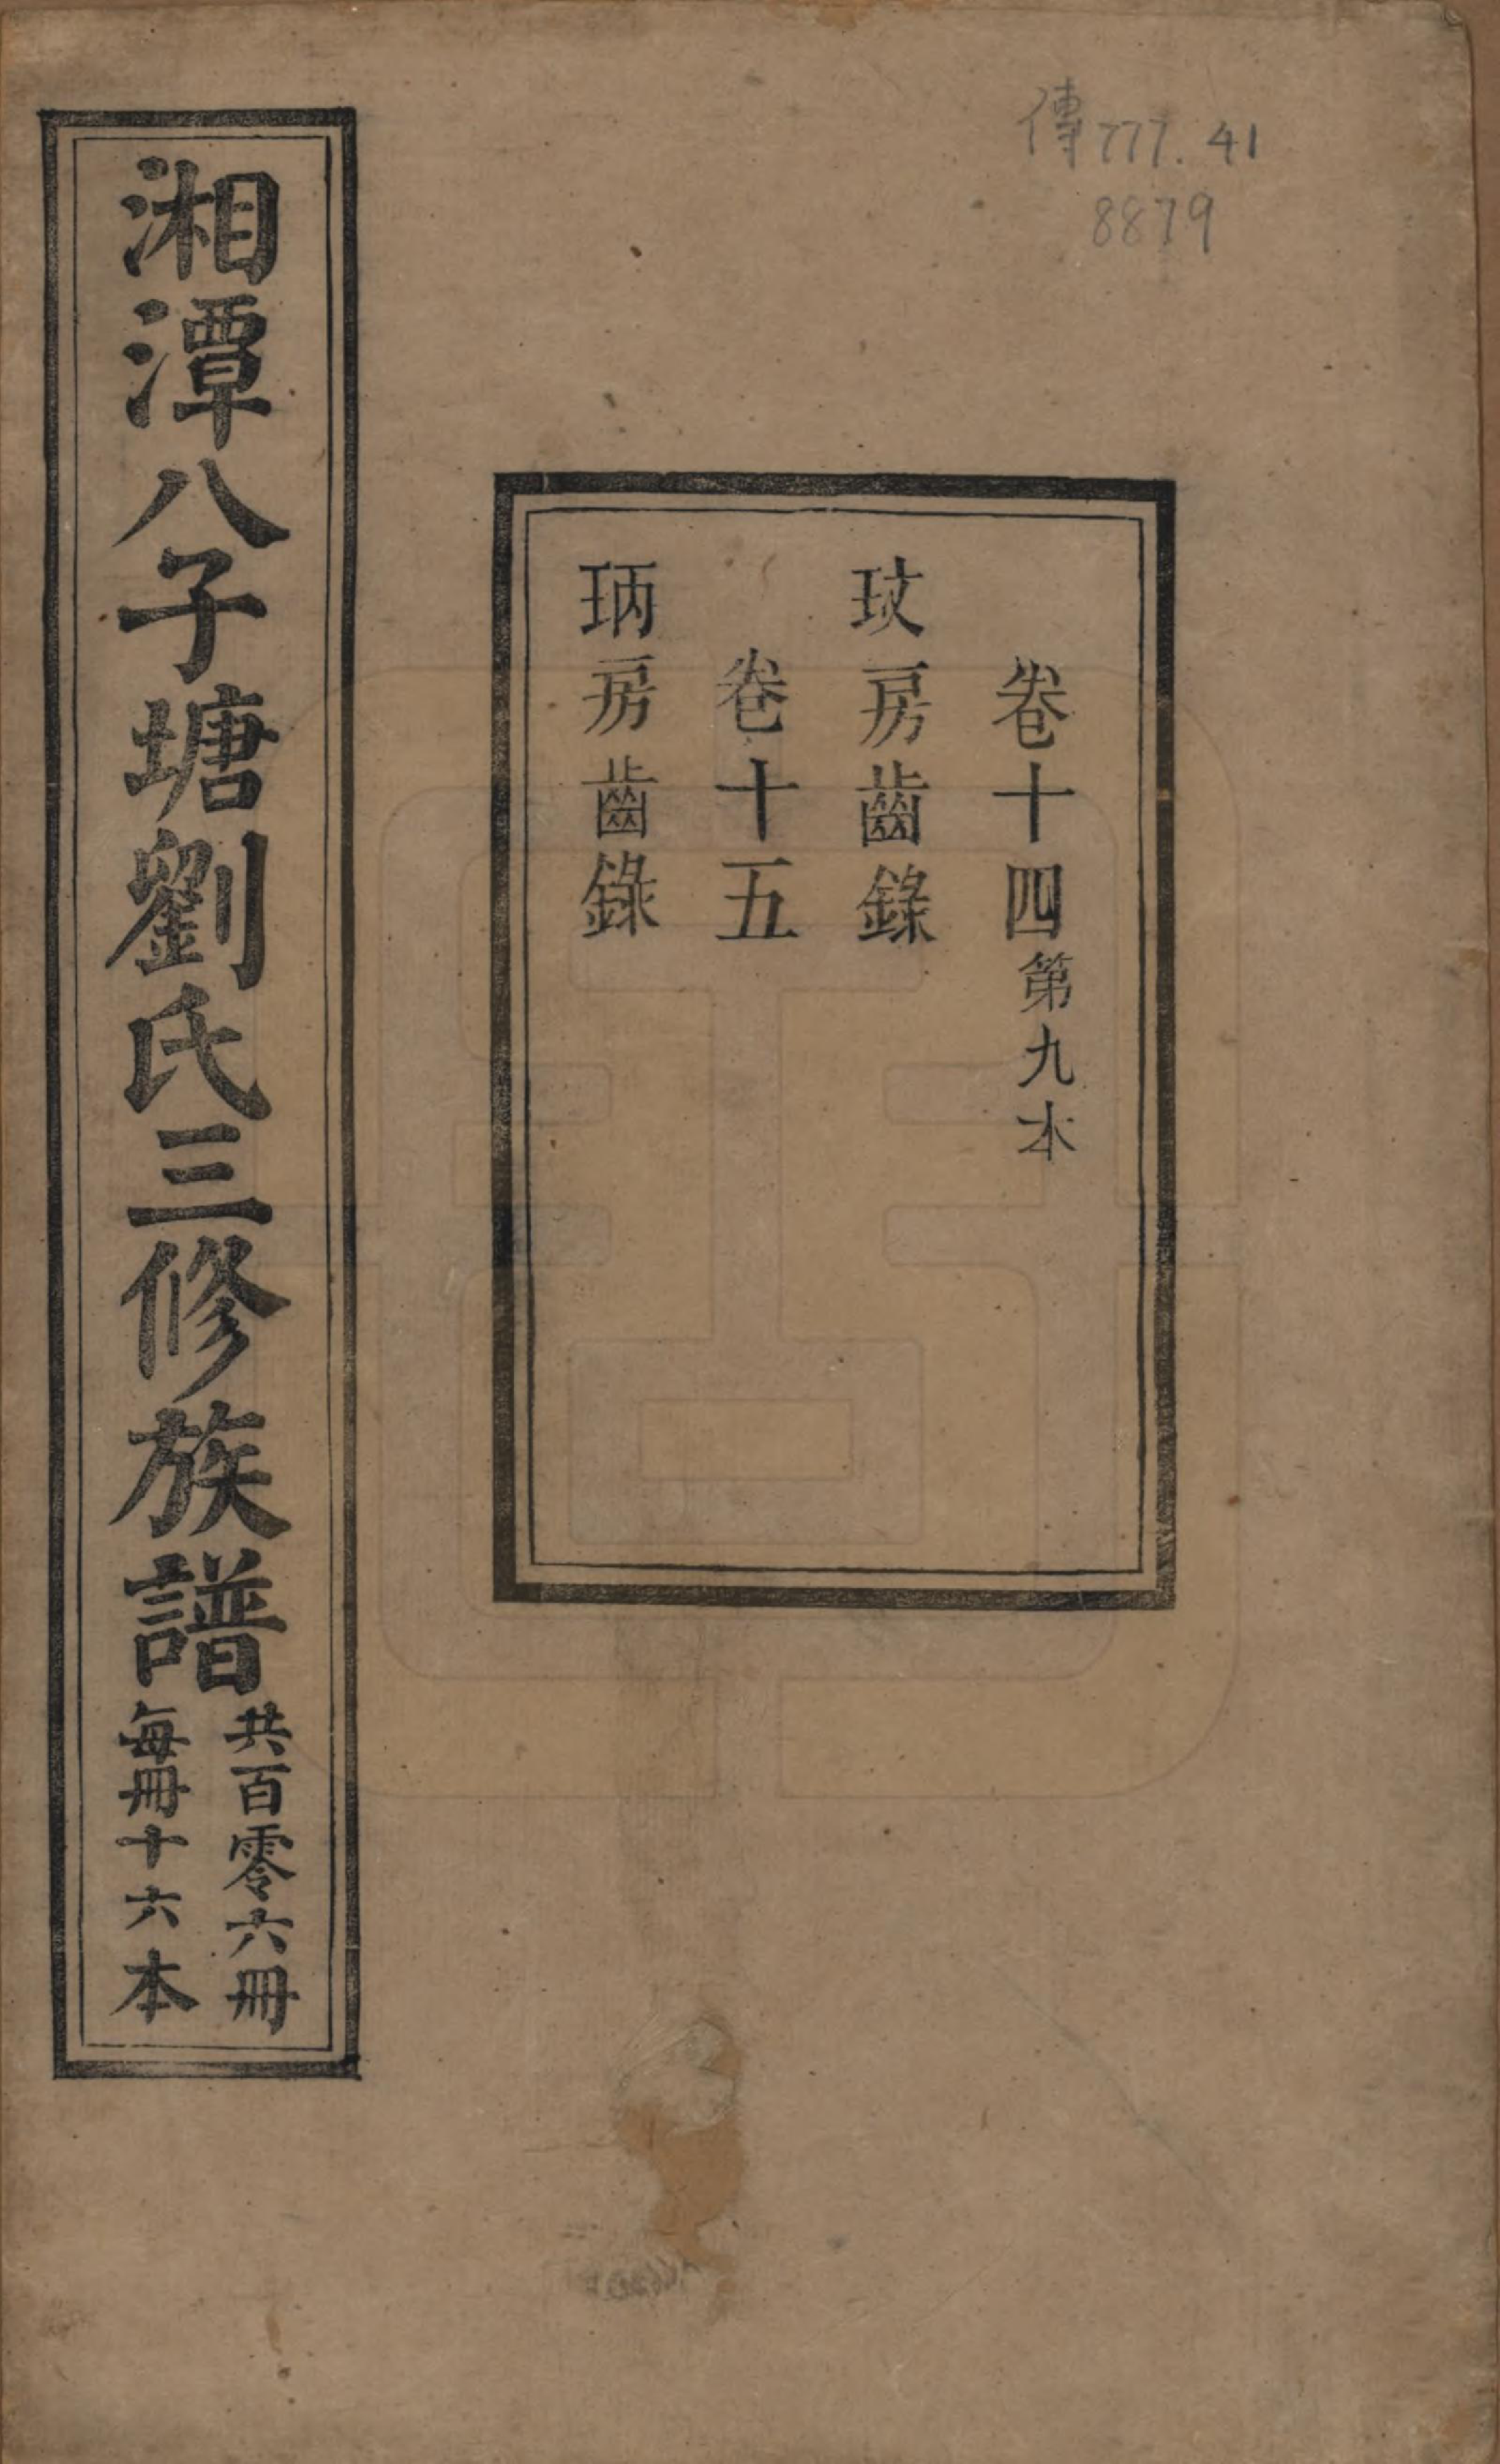 傳777.41
8879
卷十四第九本
玟房齒錄
卷十五
珃房齒錄
湘潭八子塘劉氏三修族譜
共百零六冊
每冊十六本